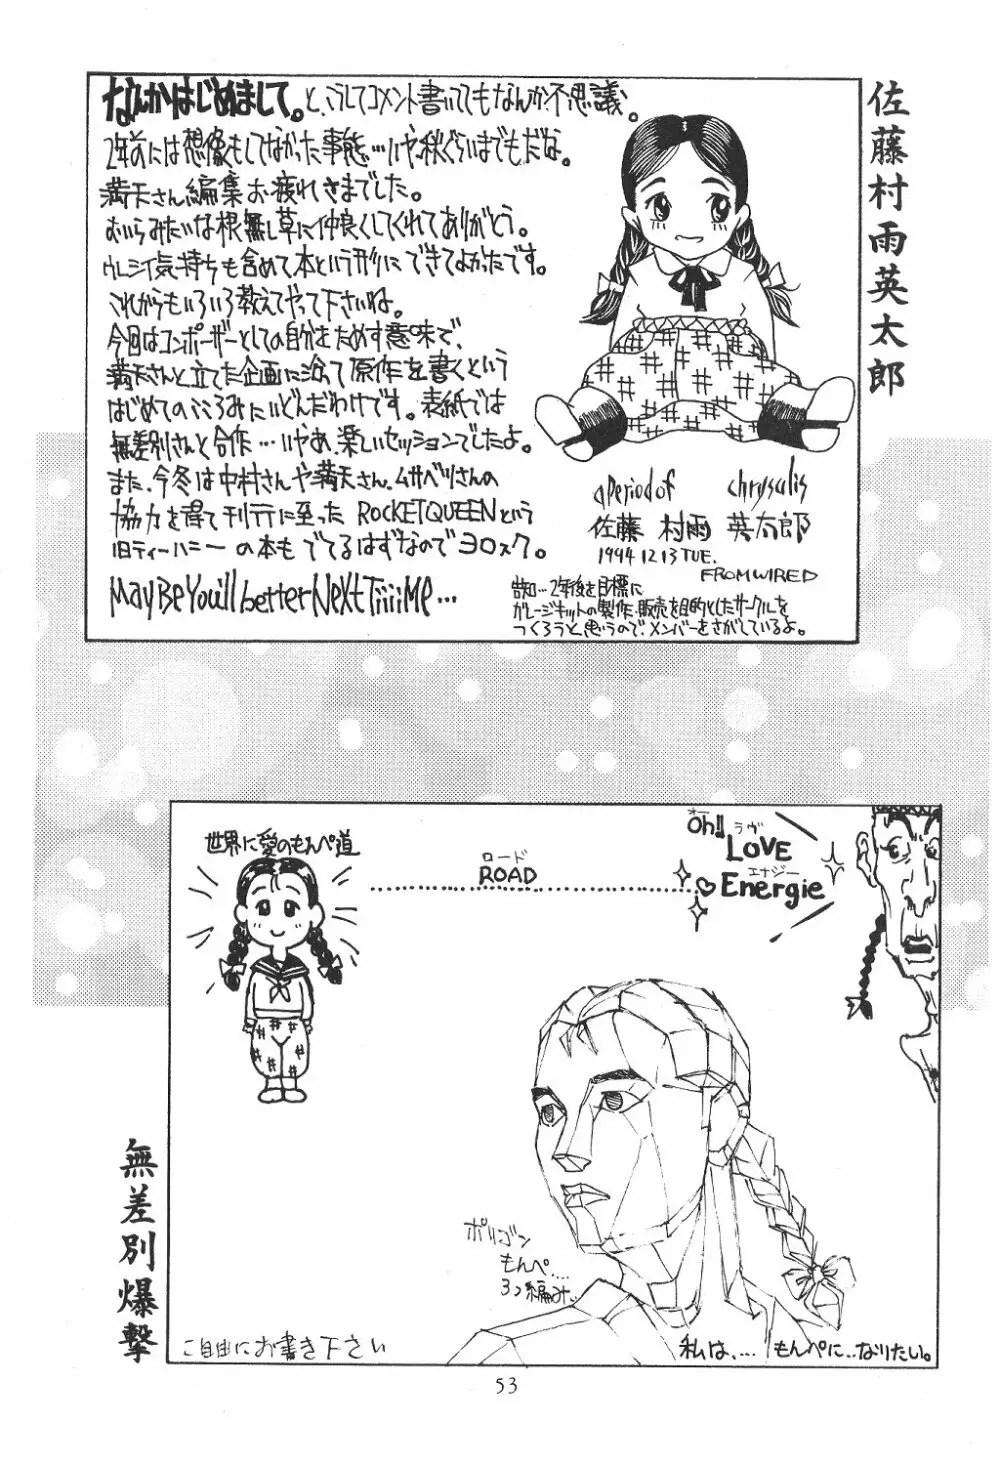 佐藤村雨英太郎
なんかはじめまして。と、こうしてコメント書いててもなんか不思議。
2年前には想像もしてなかった事態…いや、秋ぐらいまでもだな。
満天さん編集お疲れさまでした。
むいらみたいな根無し草に仲良くしてくれてありがとう。
ウレシイ気持ちも含めて本という形にできてよかったです。
これからもいろいろ教えてやって下さいね。
今回はコンポーザーとしての自分をためす意味で、
満天さんと立てた企画に沿って原作を書くという
はじめてのこころみにいどんだわけです。表紙では
無差別さんと合作…いやあ、楽しいセッションでしたよ。
また、今冬は中村さんや満天さん、ムサベツさんの
協力を得て刊行に至った ROCKETQUEENという
旧ティーハニーの本もでてるはずなのでヨロスク。
MayBeYou'll better NeXt TiiiiMe…
aperiod of chrysalis
佐藤 村雨 英太郎
1994 12 13 TUE.
FROMWIRED
告知…2年後を目標に
ガレージキットの製作、販売を目的としたサークルを
つくろうと思うので、メンバーをさがしているよ。
世界に愛のもんぺ道
ロード
ROAD
オー
Oh!!
ラヴ
LOVE
エナジー
Energie
ポリゴン
もんぺ…
3つ編み…
ご自由にお書き下さい
私は、… もんぺに…なりたい。
無差別爆撃
53